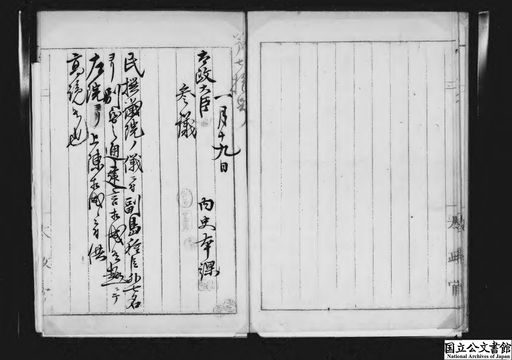 一月十九日
内史本課
太政大臣
参議
民撰議院ノ儀ニ付副島種臣外七名
ヨリ別紙之通建言相成候趣ニテ
左院ヨリ上陳相成候ニ付供
高覧候也
国立公文書館
National Archives of Japan